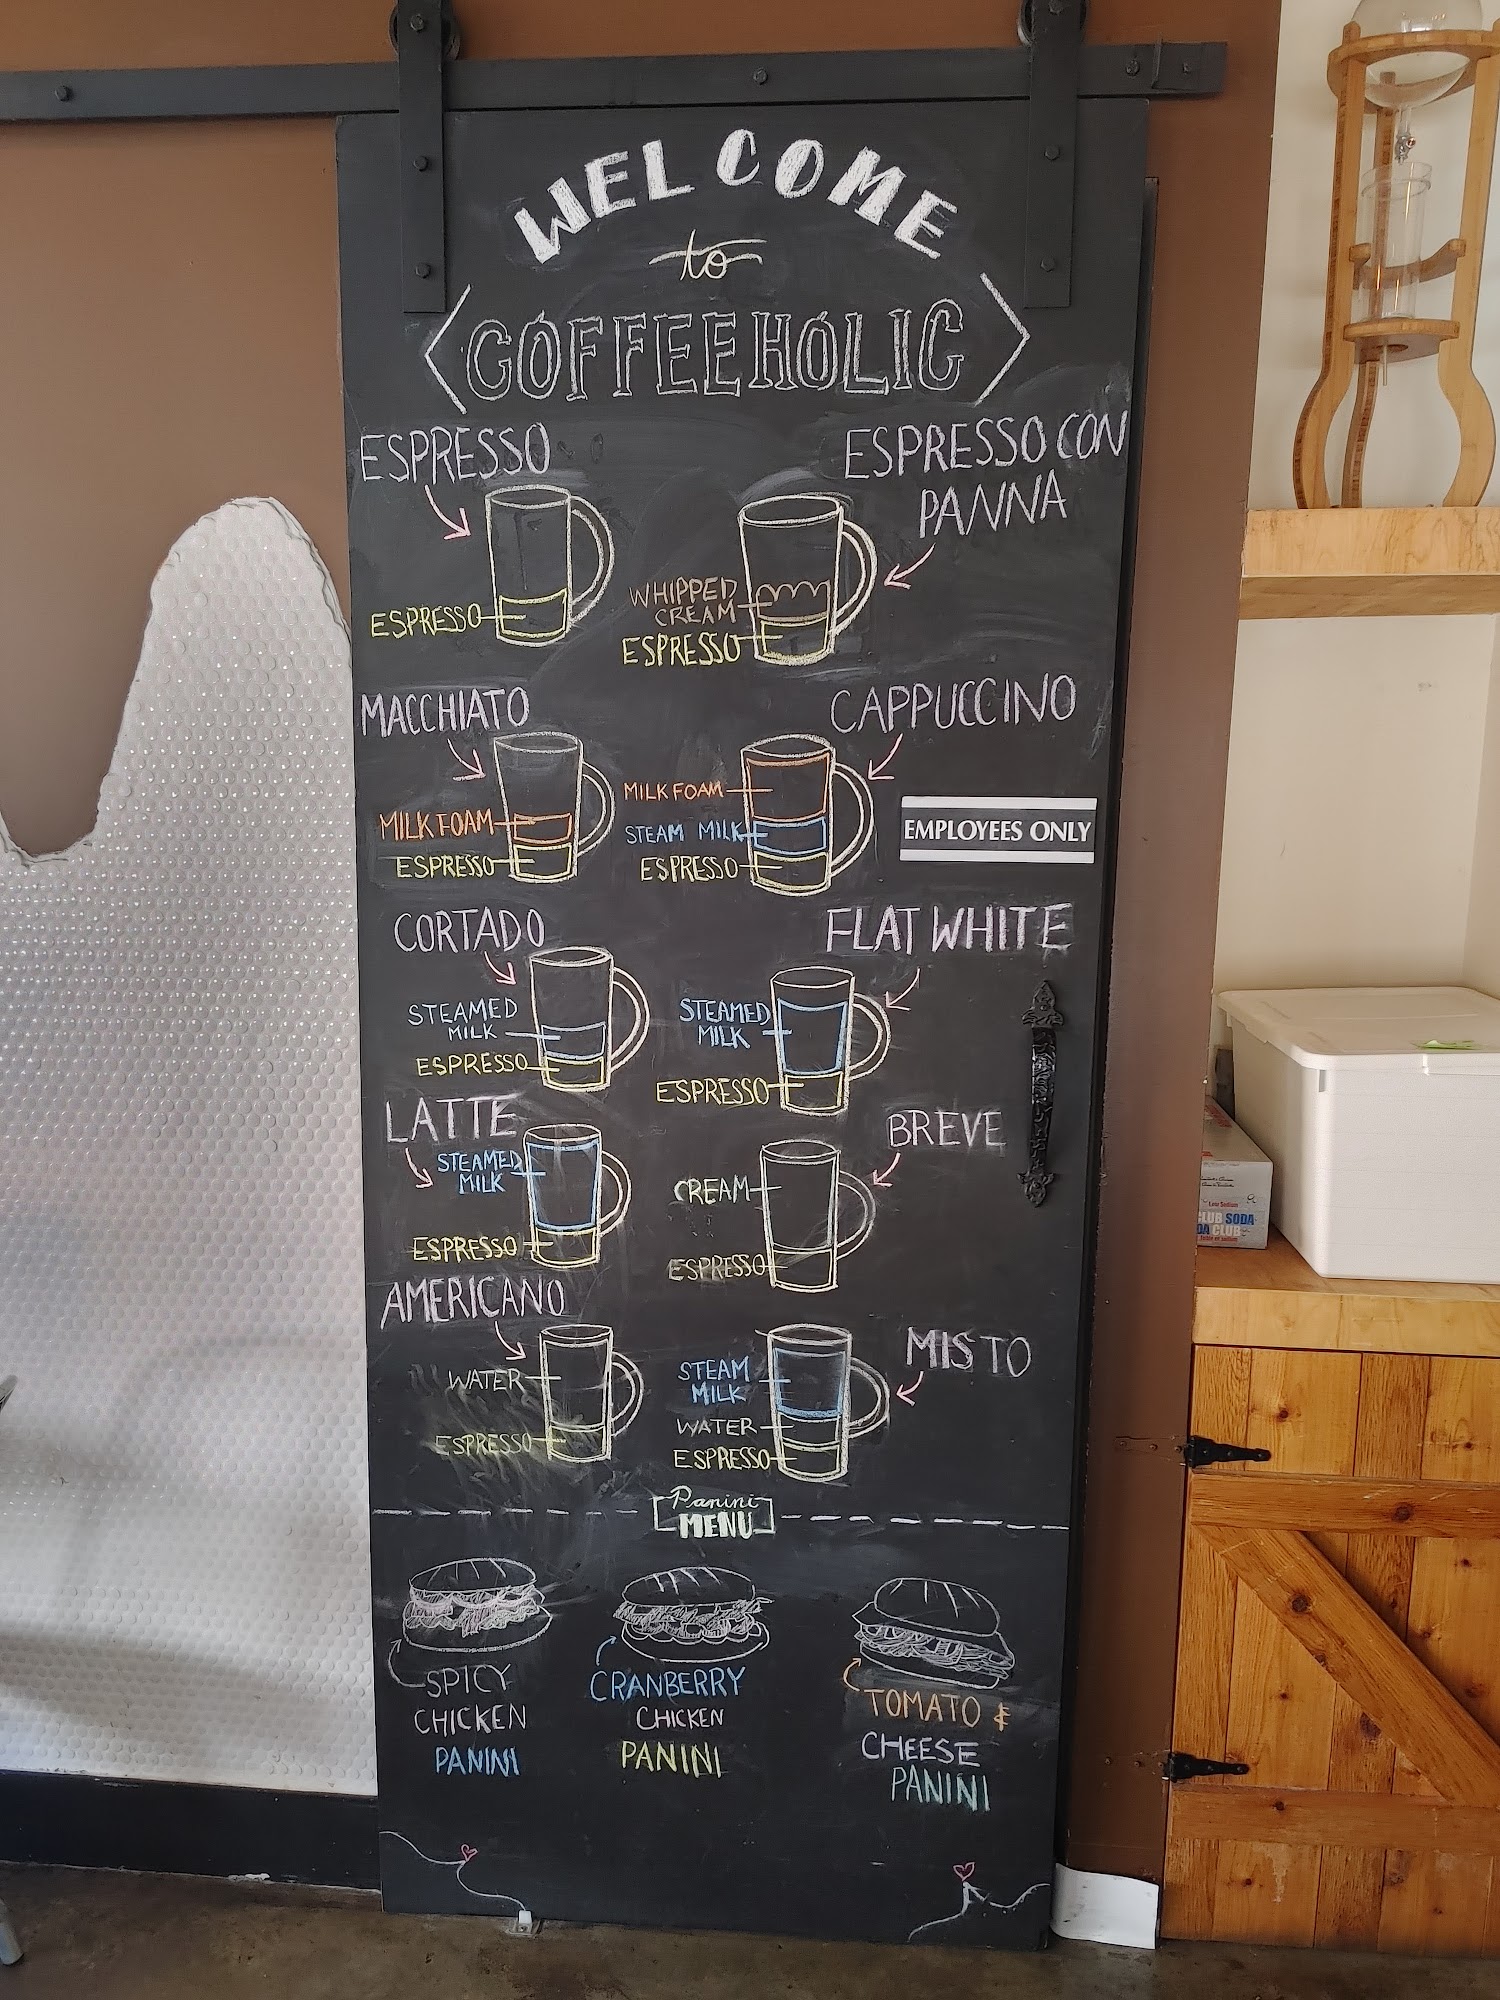 WELCOME
to
COFFEEHOLIC
ESPRESSO
ESPRESSO
ESPRESSO CON
PANNA
WHIPPED
CREAM
ESPRESSO
MACCHIATO
MILK FOAM
ESPRESSO
CAPPUCCINO
MILK FOAM
STEAM MILK
ESPRESSO
EMPLOYEES ONLY
CORTADO
STEAMED
MILK
ESPRESSO
FLAT WHITE
STEAMED
MILK
ESPRESSO
LATTE
STEAMED
MILK
ESPRESSO
BREVE
CREAM
ESPRESSO
AMERICANO
WATER
ESPRESSO
MISTO
STEAM
MILK
WATER
ESPRESSO
Panini
MENU
SPICY
CHICKEN
PANINI
CRANBERRY
CHICKEN
PANINI
TOMATO &
CHEESE
PANINI
Low Sodium
CLUB SODA
DA CLUB